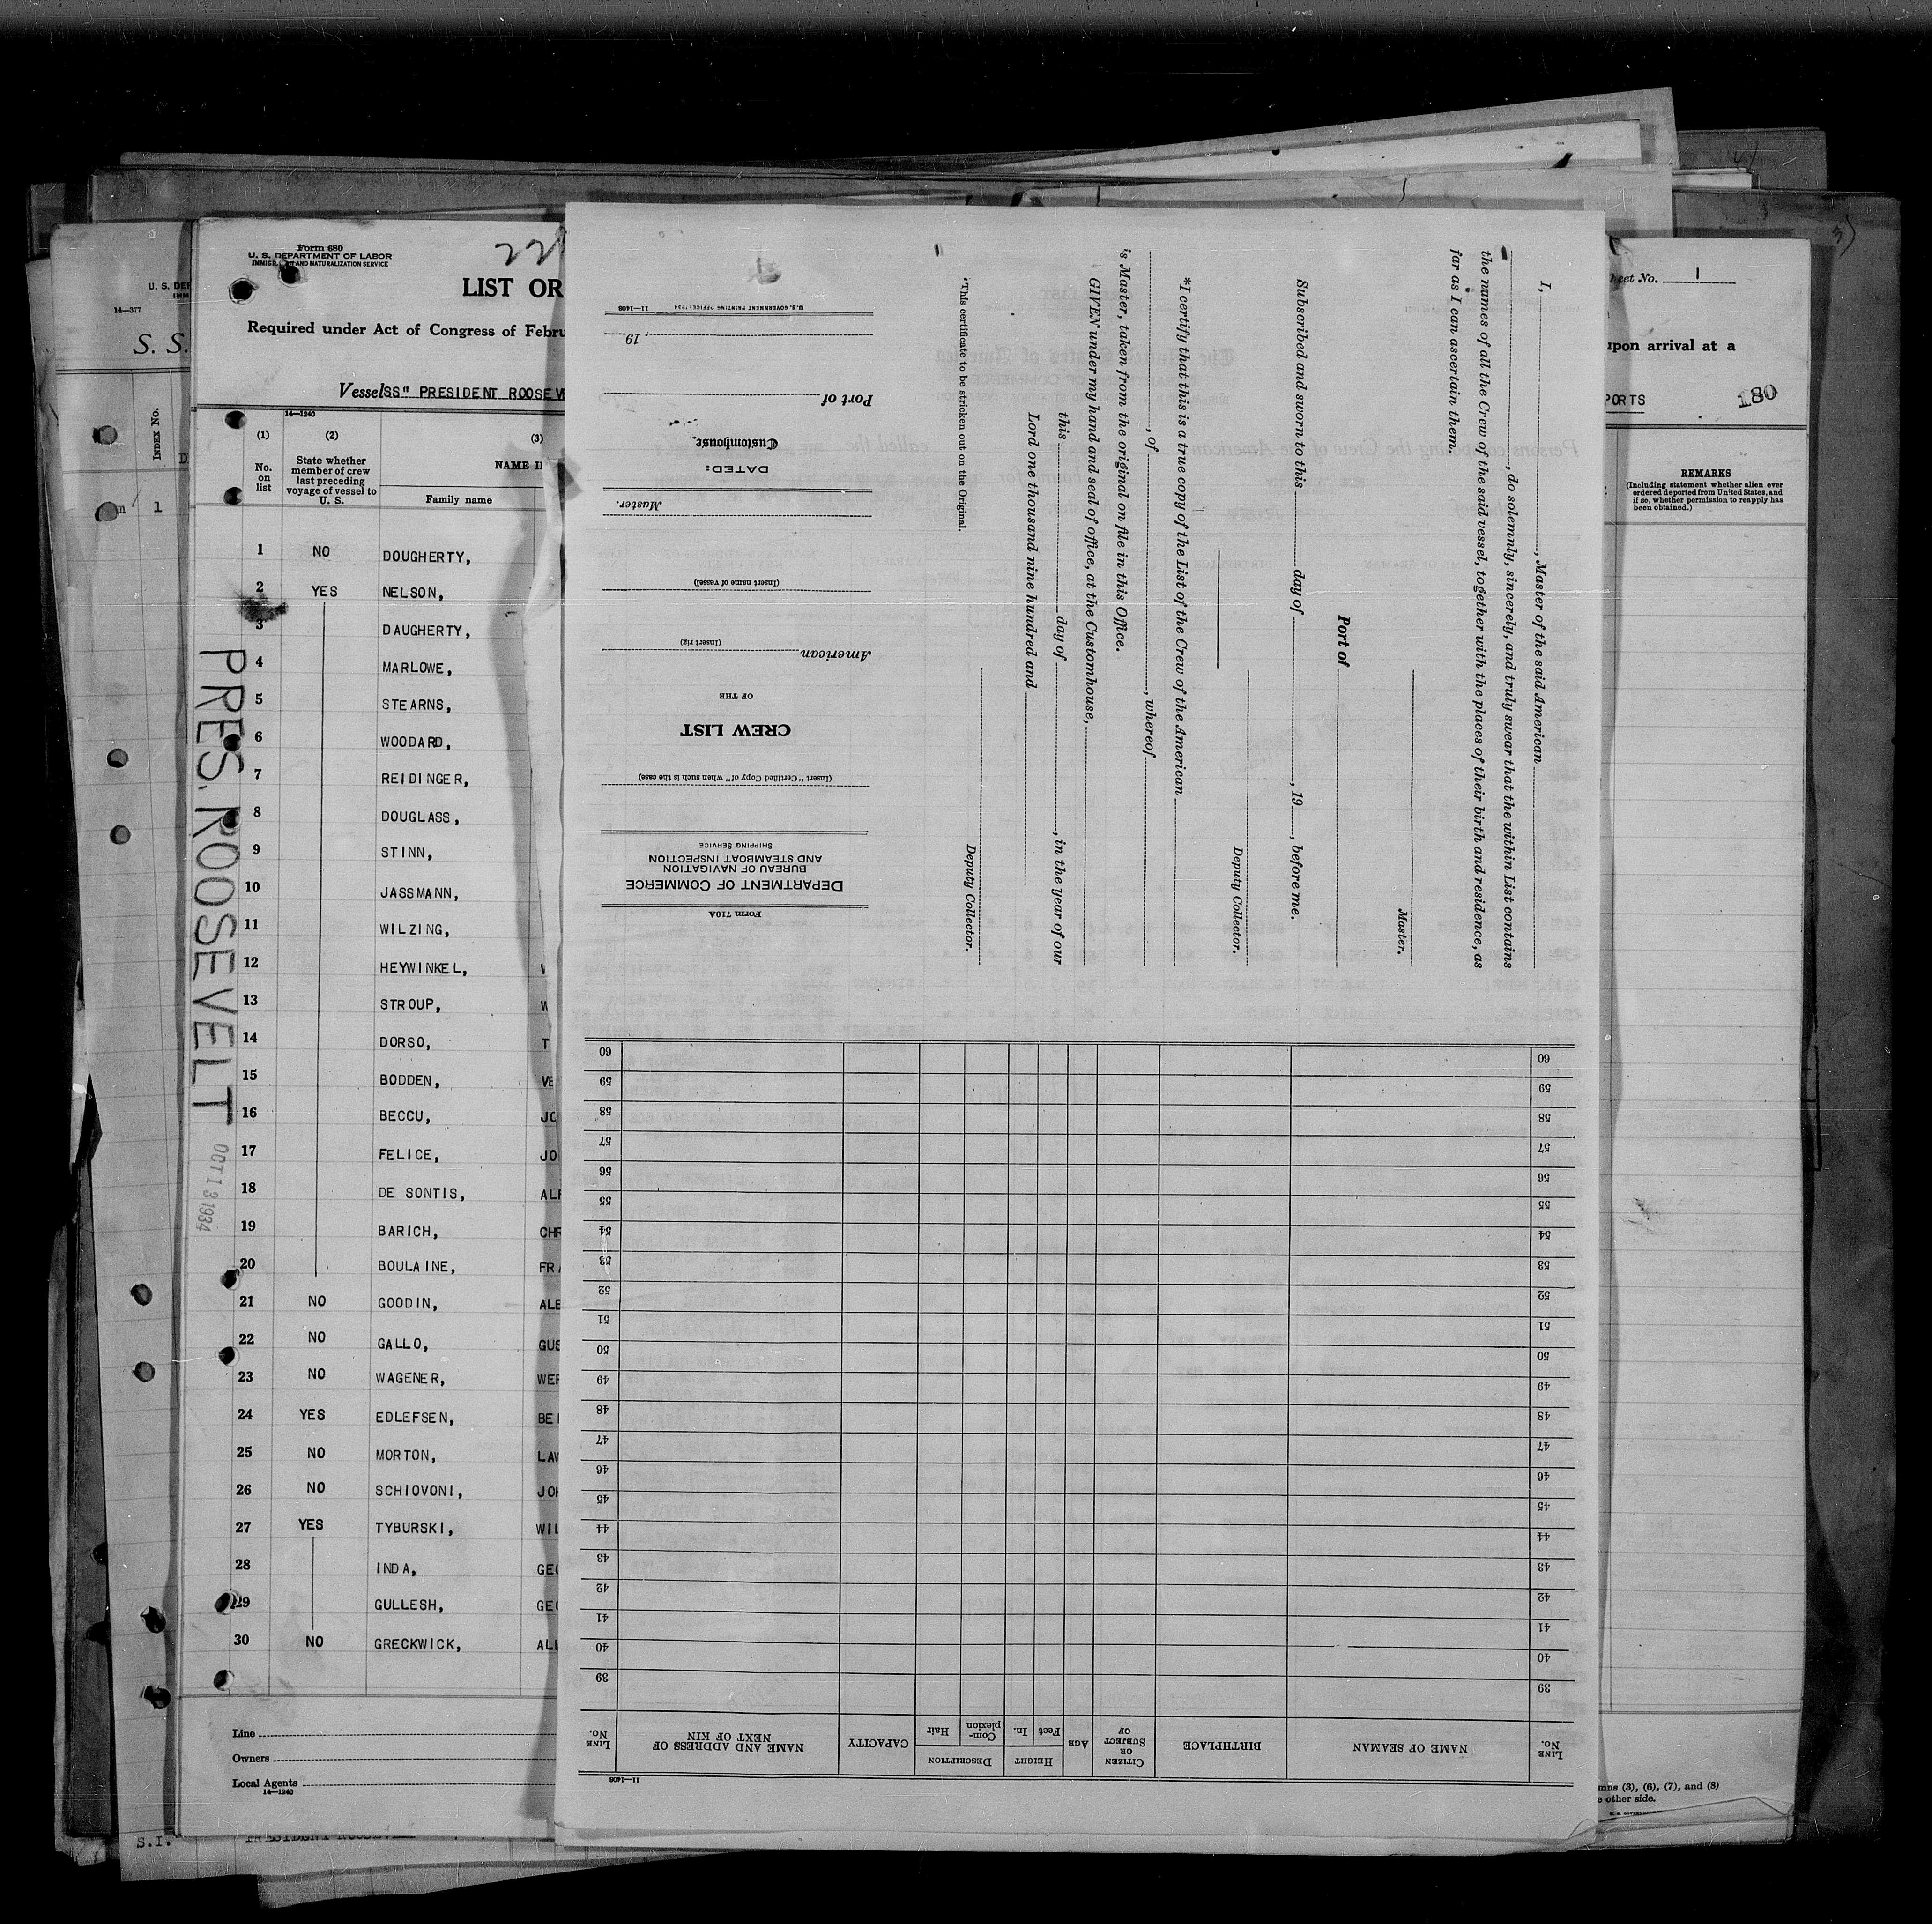 Form 680
U. S. DEPARTMENT OF LABOR
IMMIGRATION AND NATURALIZATION SERVICE
LIST OR
Required under Act of Congress of Febru
Vessel SS" PRESIDENT ROOSEV
14—1240
(1) (2) (3)
No. on list
State whether member of crew last preceding voyage of vessel to U. S.
NAME I
Family name
1 NO DOUGHERTY,
2 YES NELSON,
3 DAUGHERTY,
4 MARLOWE,
5 STEARNS,
6 WOODARD,
7 REIDINGER,
8 DOUGLASS,
9 STINN,
10 JASSMANN,
11 WILZING,
12 HEYWINKEL,
13 STROUP, W
14 DORSO, T
15 BODDEN, VE
16 BECCU, JO
17 FELICE, JO
18 DE SONTIS, ALF
19 BARICH, CHR
20 BOULAINE, FRA
21 NO GOODIN, ALE
22 NO GALLO, GUS
23 NO WAGENER, WER
24 YES EDLEFSEN, BE
25 NO MORTON, LAW
26 NO SCHIOVONI, JOH
27 YES TYBURSKI, WIL
28 INDA, GEO
29 GULLESH, GEO
30 NO GRECKWICK, ALE
Line
Owners
Local Agents
14—1240
PRES. ROOSEVELT
OCT 13 1934
14—377
S. S.
INDEX No.
1
S.I.
I, , Master of the said American
, do solemnly, sincerely, and truly swear that the within List contains
the names of all the Crew of the said vessel, together with the places of their birth and residence, as
far as I can ascertain them.
Master.
Port of
Subscribed and sworn to this day of , 19 , before me.
Deputy Collector.
*I certify that this is a true copy of the List of the Crew of the American
, of , whereof
's Master, taken from the original on file in this Office.
GIVEN under my hand and seal of office, at the Customhouse,
this day of , in the year of our
Lord one thousand nine hundred and
Deputy Collector.
*This certificate to be stricken out on the Original.
Form 710A
DEPARTMENT OF COMMERCE
BUREAU OF NAVIGATION
AND STEAMBOAT INSPECTION
SHIPPING SERVICE
(Insert "Certified Copy of" when such is the case)
CREW LIST
OF THE
American
(Insert rig)
(Insert name of vessel)
Master.
DATED:
Customhouse,
Port of
19
U.S. GOVERNMENT PRINTING OFFICE: 1934 11—1408
11—1408
LINE No.
NAME OF SEAMAN
BIRTHPLACE
CITIZEN OR SUBJECT OF
AGE
HEIGHT
Feet
In.
DESCRIPTION
Complexion
Hair
CAPACITY
NAME AND ADDRESS OF NEXT OF KIN
LINE No.
39 39
40 40
41 41
42 42
43 43
44 44
45 45
46 46
47 47
48 48
49 49
50 50
51 51
52 52
53 53
54 54
55 55
56 56
57 57
58 58
59 59
60 60
heet No. 1
upon arrival at a
PORTS
180
REMARKS
(Including statement whether alien ever
ordered deported from United States, and
if so, whether permission to reapply has
been obtained.)
mns (3), (6), (7), and (8)
e other side.